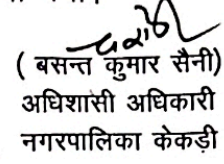 ( बसन्त कुमार सैनी)
अधिशासी अधिकारी
नगरपालिका केकड़ी